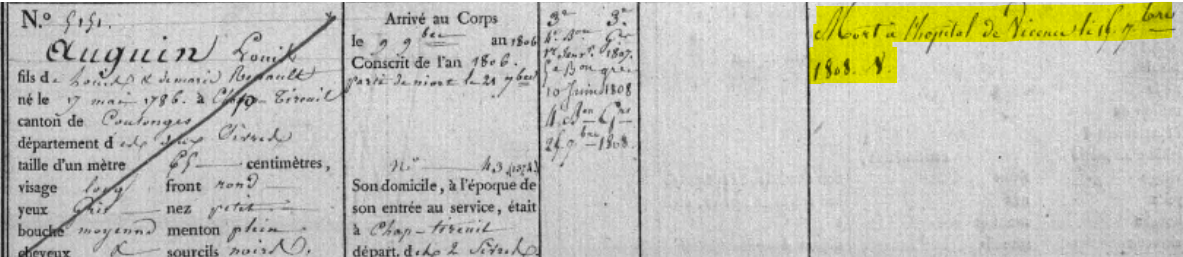 N.º 5151.
Auguin Louis
fils de Louis & de marie Renault
né le 17 mai 1786. à Chap-Tireuil
canton de Coulonges
département des deux Sèvres
taille d'un mètre 65 centimètres,
visage long front rond
yeux gris nez petit
bouche moyenne menton plein
cheveux & sourcils noirs.
Arrivé au Corps
le 9 9bre an 1806
Conscrit de l'an 1806.
parti de niort le 21 7bre
N.º 43 (1874)
Son domicile, à l'époque de
son entrée au service, était
à Chap-tireuil
départ. des 2 Sèvres.
3e 3e
4e Bon Gre
1er Janvr. 1807.
Bon gre
10 Juin 1808
4 Bon Gre
1808.
Mort à l'hopital de Vicence le 15. 7bre
1808. N.